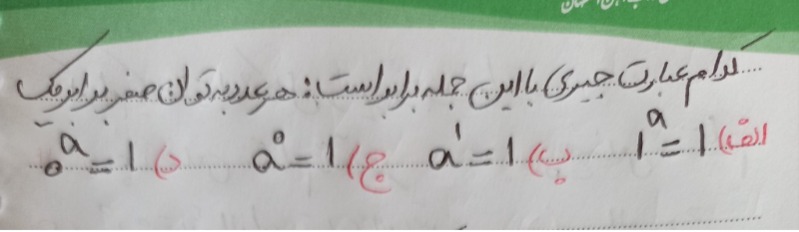 کدام عبارت جبری با این جمله برابر است: هر عدد به توان صفر برابر یک
الف) 1ᵃ = 1 ب) a¹ = 1 ج) a⁰ = 1 د) 0ᵃ = 1